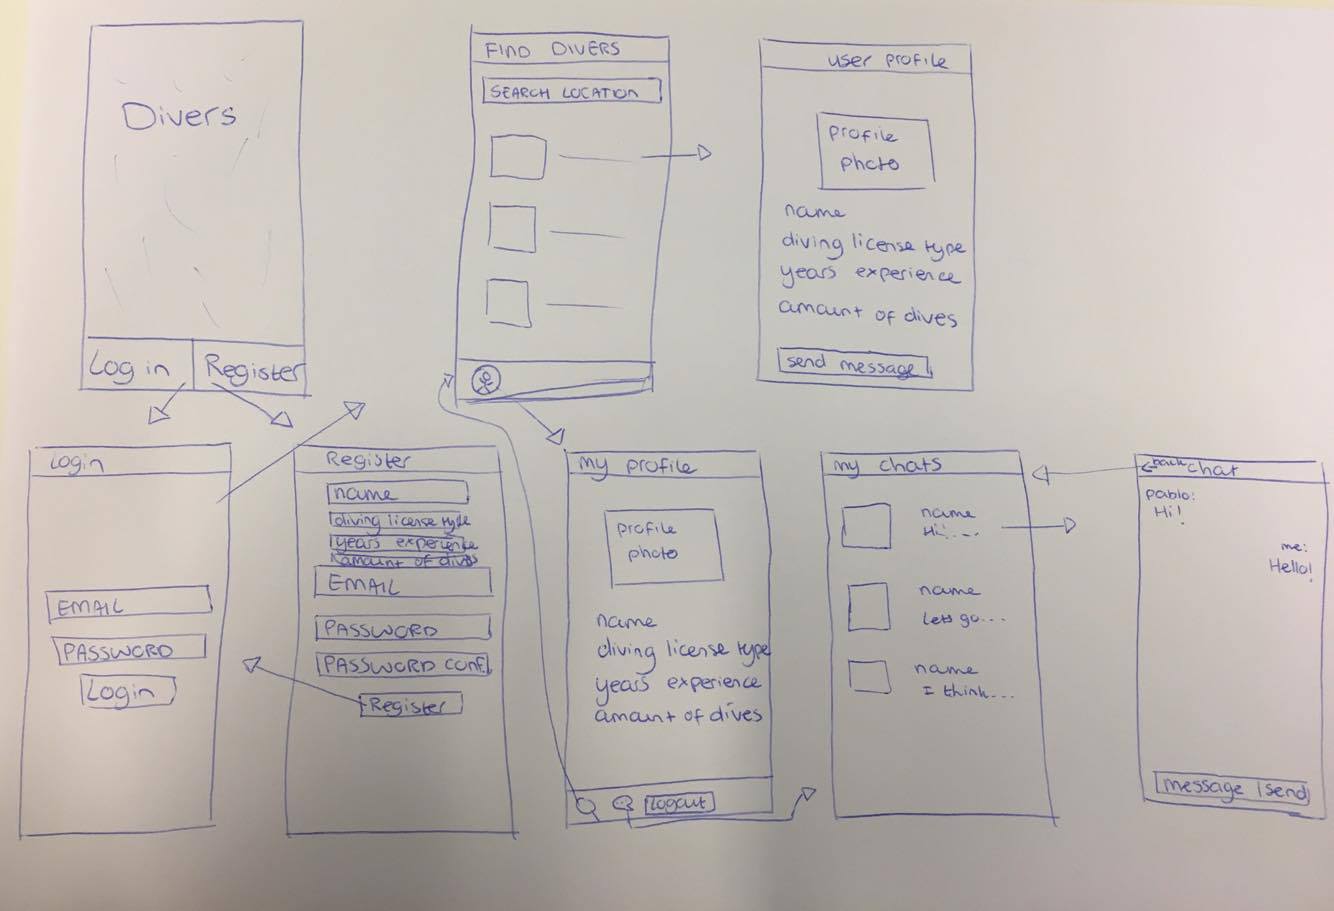 Divers
Log in
Register
FIND DIVERS
SEARCH LOCATION
user profile
profile
photo
name
diving license type
years experience
amount of dives
send message
Login
EMAIL
PASSWORD
Login
Register
name
diving license type
years experience
amount of dives
EMAIL
PASSWORD
PASSWORD CONF.
Register
my profile
profile
photo
name
diving license type
years experience
amount of dives
Logout
my chats
name
Hi!....
name
Lets go...
name
I think...
back chat
pablo:
Hi!
me:
Hello!
message send